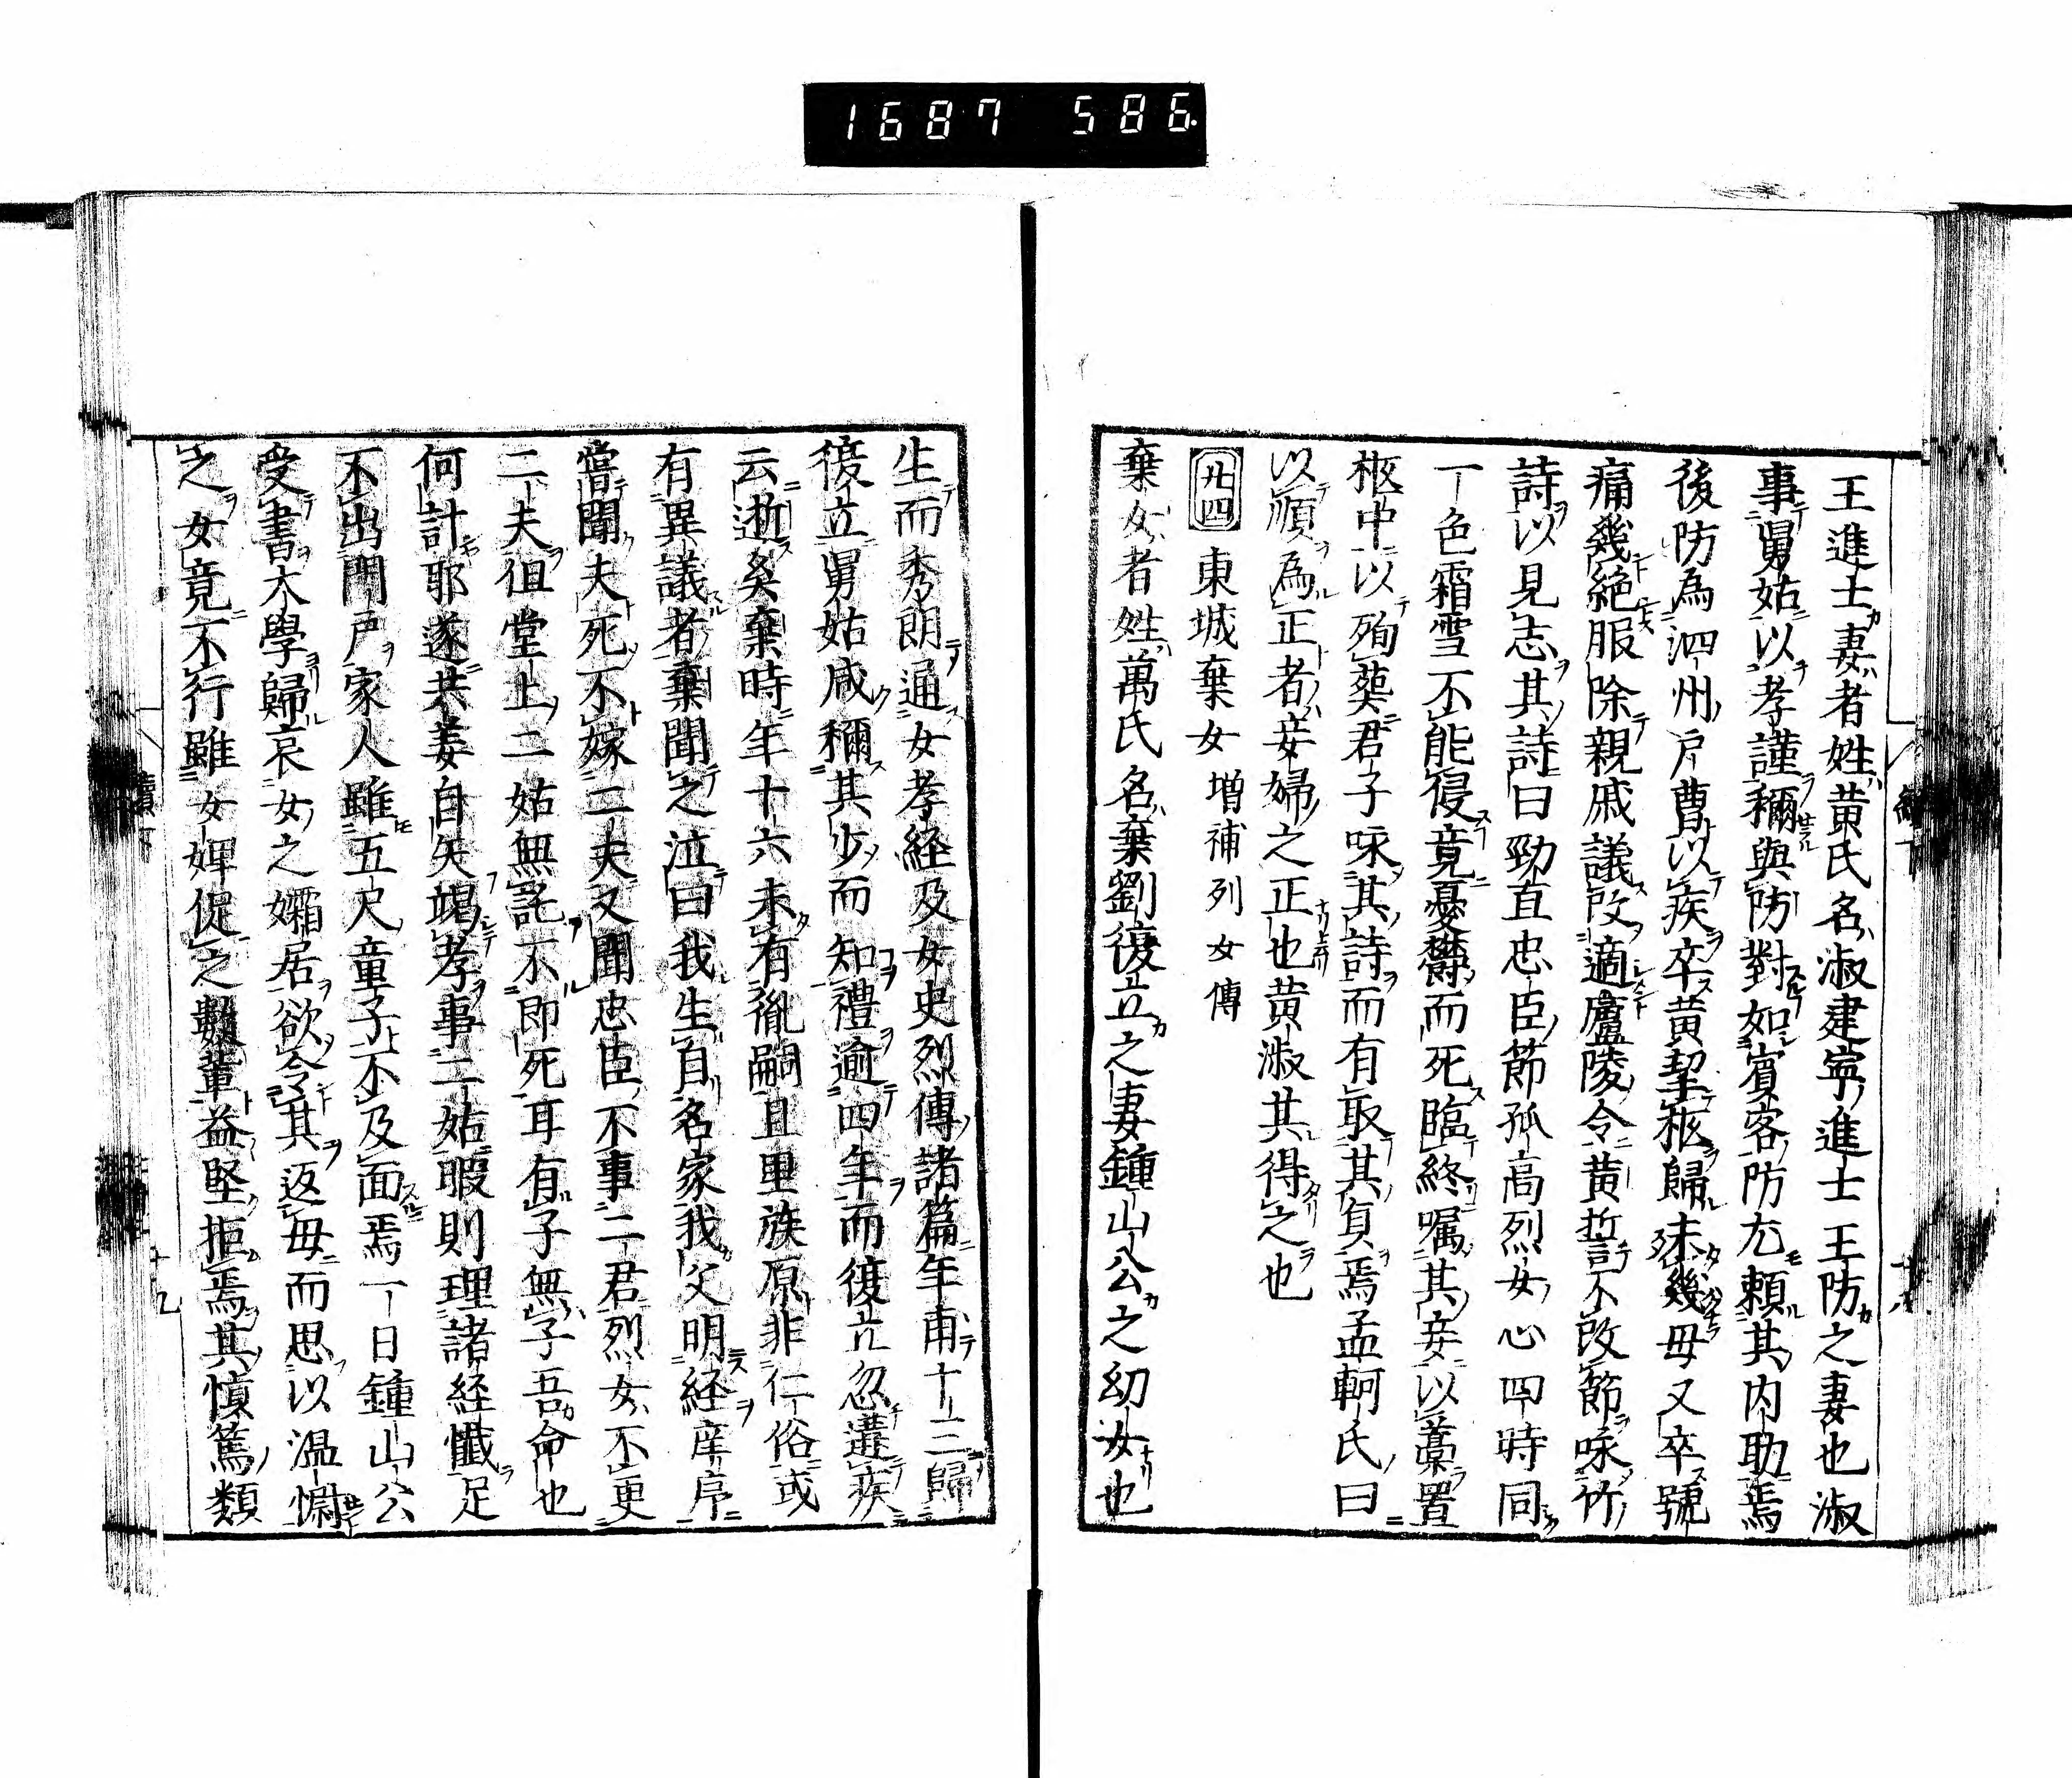 1687 586
王進士妻者姓黄氏名淑建寧進士王防之妻也淑
事舅姑以孝謹稱與防對如賓客防尤頼其内助焉
後防為泗州戸曹以疾卒黄挈柩歸未幾母又卒號
痛幾絶服除親戚議改適廬陵令黄誓不改節咏竹
詩以見志其詩曰勁直忠臣節孤高烈女心四時同
一色霜雪不能侵竟憂欝而死臨終嘱其妾以藁置
柩中以殉葬君子咏其詩而有取其貞焉孟軻氏曰
以順為正者妾婦之正也黄淑其得之也
廿四 東城棄女 増補列女傳
棄女者姓萬氏名棄劉復立之妻鍾山公之幼女也
生而秀朗通女孝経及女史烈傳諸篇年甫十三歸
復立舅姑咸稱其少而知禮逾四年而復立忽遘疾
云逝矣棄時年十六未有胤嗣且里族原非仁俗或
有異議者棄聞之泣曰我生自名家我父明経庠序
嘗聞夫死不嫁二夫又聞忠臣不事二君烈女不更
二夫徂堂上二姑無託不即死耳有子無子吾命也
何計耶遂共姜自矢竭孝事二姑暇則理諸経懺足
不出門戸家人雖五尺童子不及面焉一日鍾山公
受書大學歸哀女之孀居欲令其返母而思以温慰
之女竟不行雖女婢促之數輩益堅拒焉其慎篤類